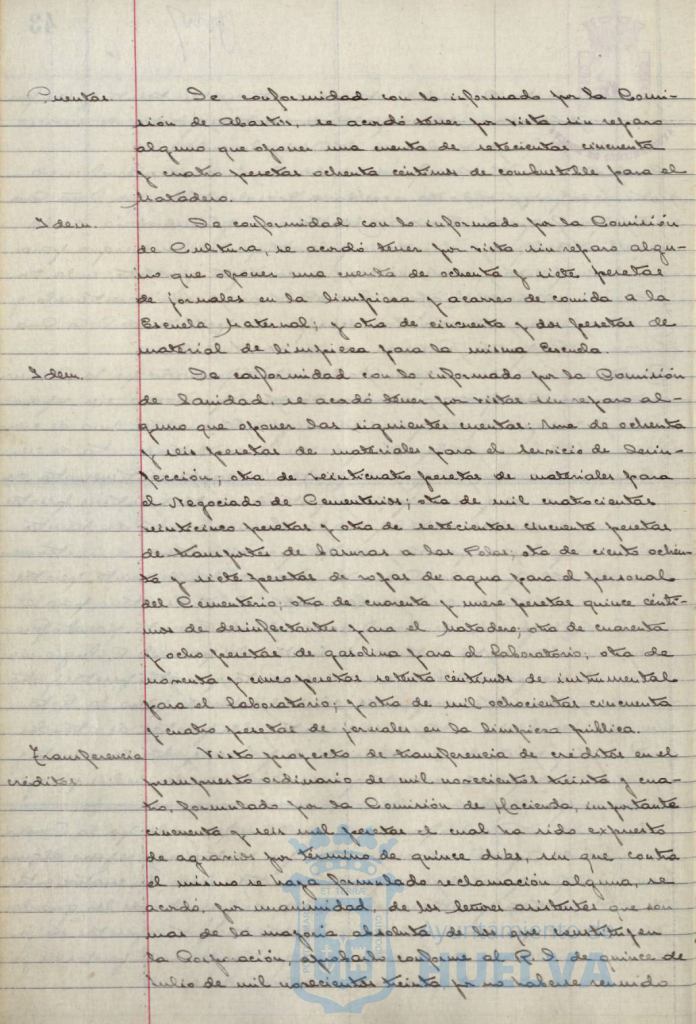 Cuentas. De conformidad con lo informado por la Comi-
sión de Abastos, se acordó tener por vista sin reparo
alguno que oponer una cuenta de setecientas cincuenta
y cuatro pesetas ochenta céntimos de combustible para el
Matadero.
Idem. De conformidad con lo informado por la Comisión
de Cultura, se acordó tener por vista sin reparo algu-
no que oponer una cuenta de ochenta y siete pesetas
de jornales en la limpieza y acarreo de comida a la
Escuela Maternal; y otra de cincuenta y dos pesetas de
material de limpieza para la misma Escuela.
Idem. De conformidad con lo informado por la Comisión
de Sanidad, se acordó tener por vistas sin reparo al-
guno que oponer las siguientes cuentas: Una de ochenta
y seis pesetas de materiales para el servicio de Desin-
fección; otra de veinticuatro pesetas de materiales para
el Negociado de Cementerios; otra de mil cuatrocientas
veinticinco pesetas y otra de setecientas cincuenta pesetas
de transportes de basuras a las Polas; otra de ciento ochen-
ta y siete pesetas de ropas de agua para el personal
del Cementerio; otra de cuarenta y nueve pesetas quince cénti-
mos de desinfectantes para el Matadero; otra de cuarenta
y ocho pesetas de gasolina para el Laboratorio; otra de
noventa y cinco pesetas setenta céntimos de instrumental
para el Laboratorio; y otra de mil ochocientas cincuenta
y cuatro pesetas de jornales en la limpieza pública.
Transferencia Visto proyecto de transferencia de créditos en el
créditos. presupuesto ordinario de mil novecientos treinta y cua-
tro, formulado por la Comisión de Hacienda, importante
cincuenta y seis mil pesetas el cual ha sido expuesto
de agravios por término de quince días, sin que contra
el mismo se haya formulado reclamación alguna, se
acordó, por unanimidad, de los Señores asistentes que son
mas de la mayoría absoluta de los que constituyen
la Corporación, aprobarlo conforme al R. D. de quince de
Julio de mil novecientos treinta por no haberse reunido
Ayuntamiento de
HUELVA